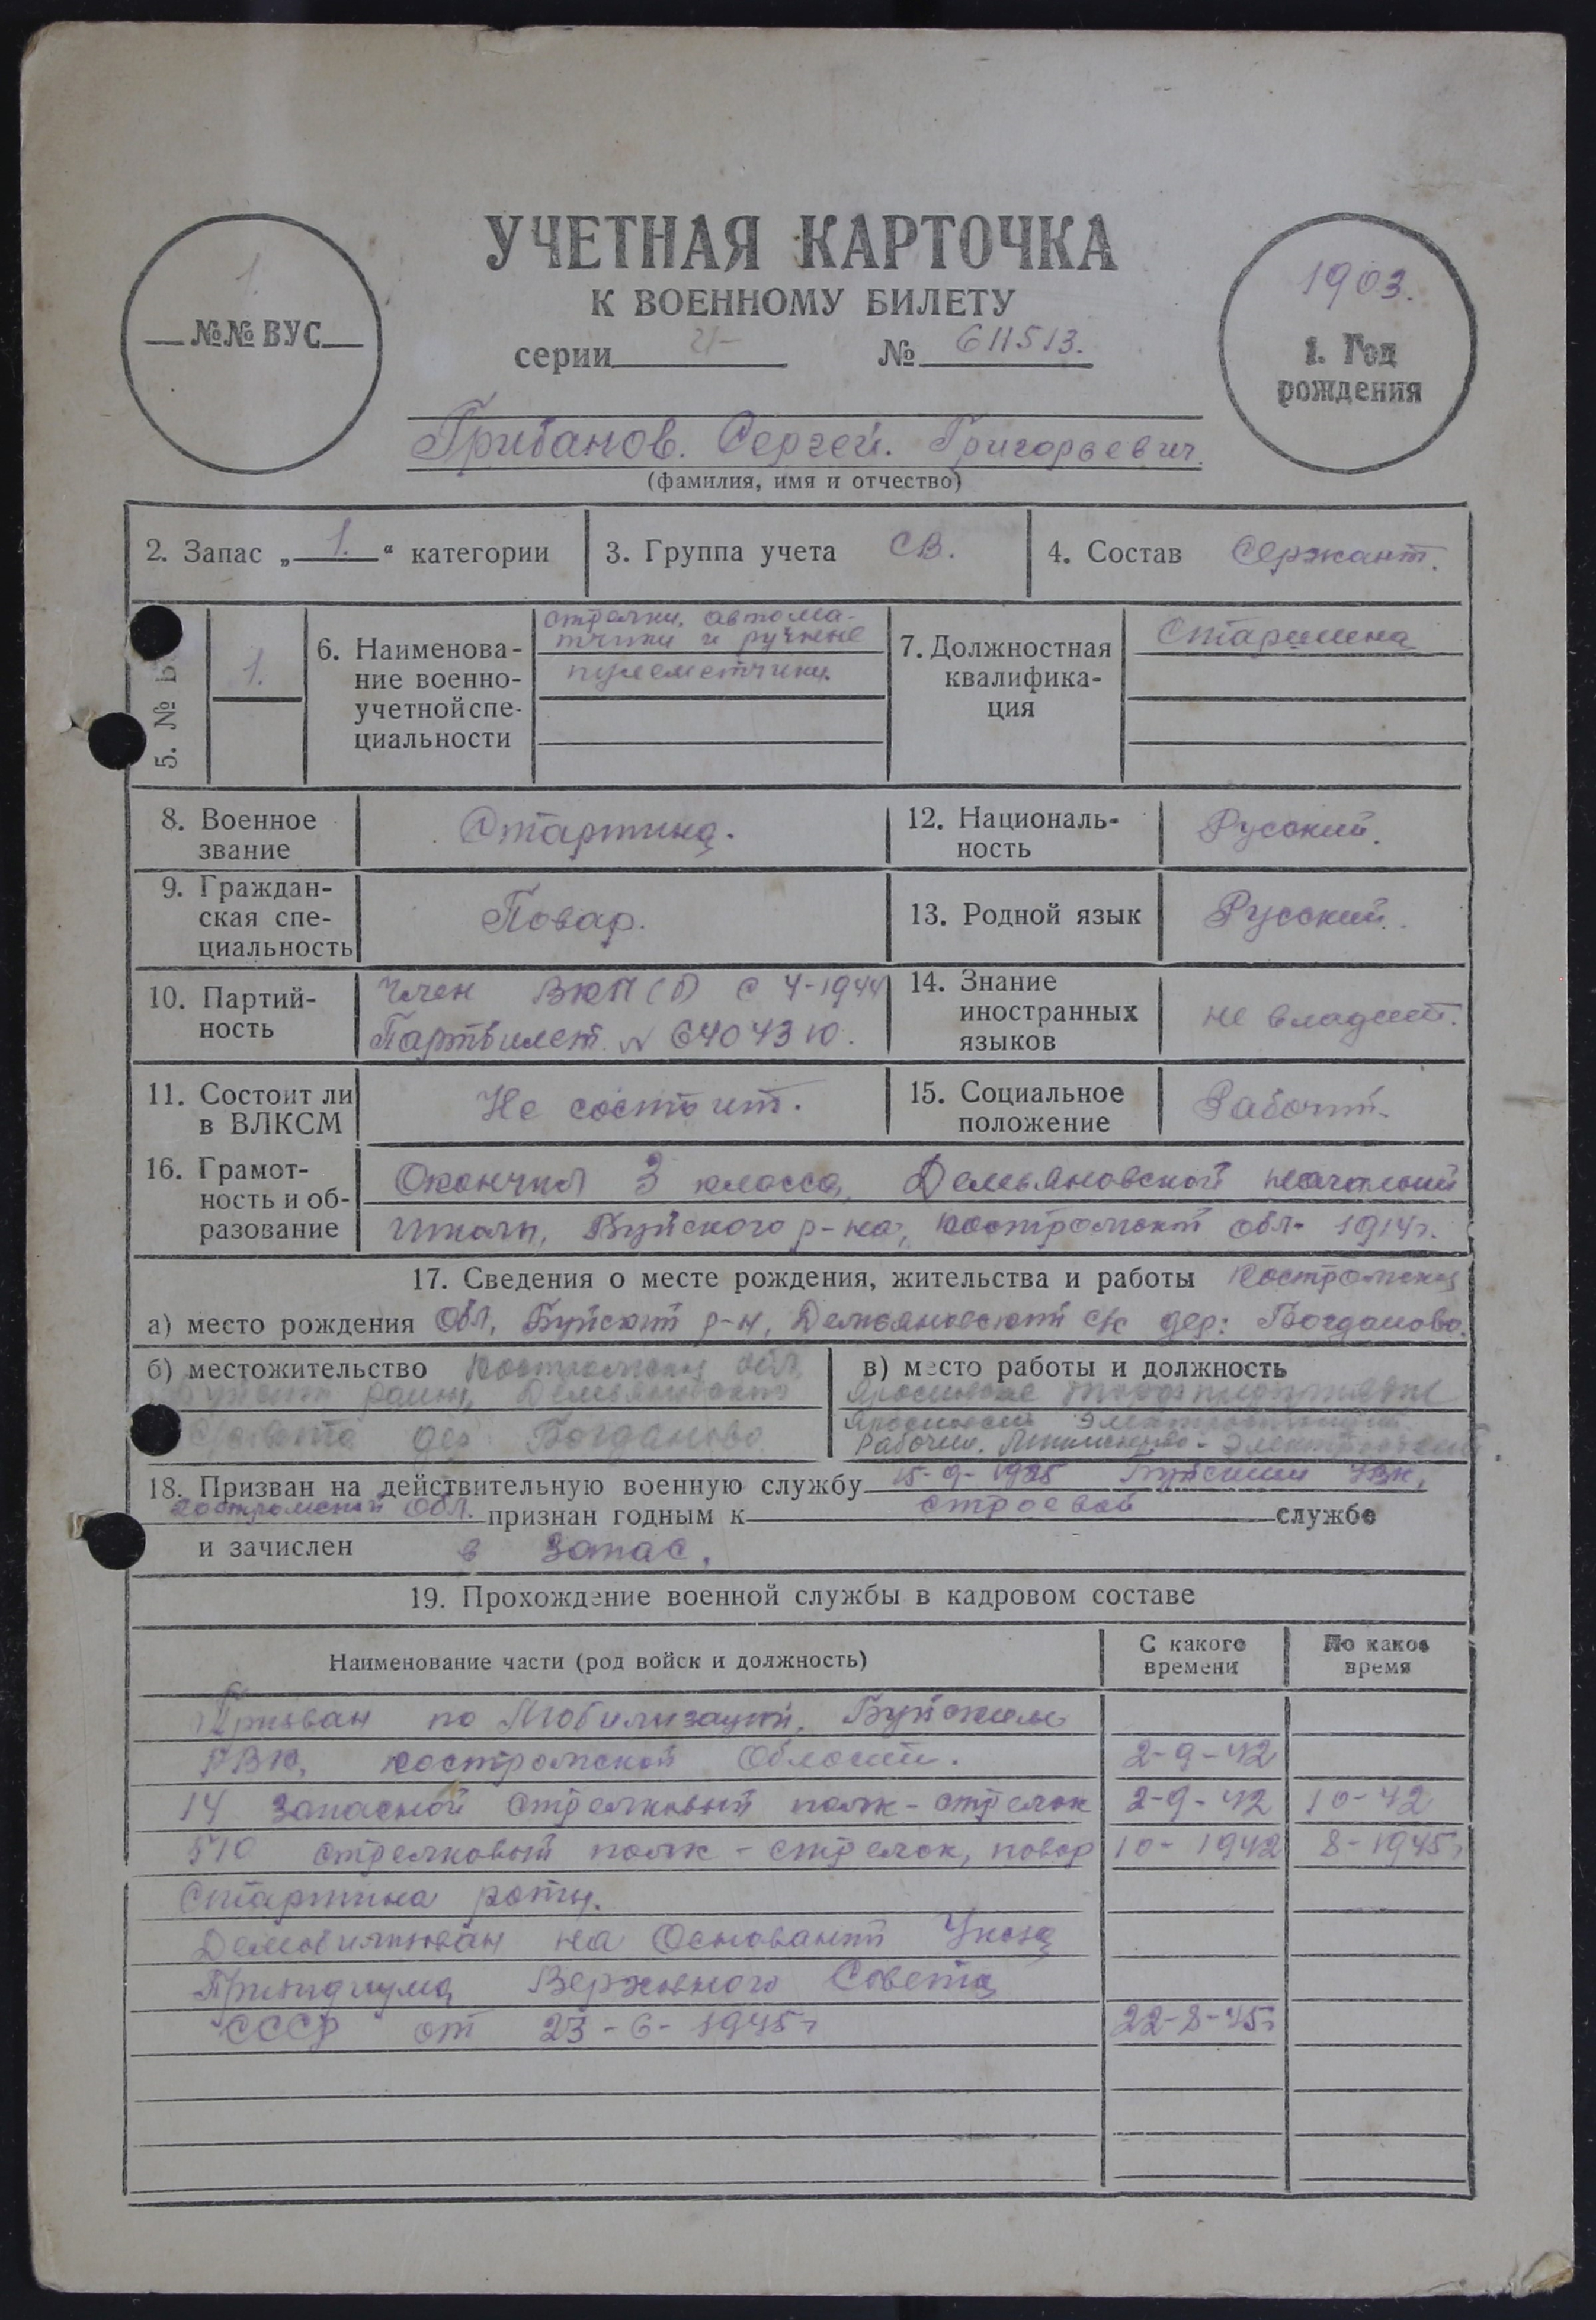 УЧЕТНАЯ КАРТОЧКА
К ВОЕННОМУ БИЛЕТУ
1.
№№ ВУС
серии И- № 611513.
1903.
1. Год
рождения
Грибанов. Сергей. Григорьевич.
(фамилия, имя и отчество)
2. Запас „1.“ категории
3. Группа учета СВ.
4. Состав Сержант.
5. №
1.
6. Наименова-
ние военно-
учетной спе-
циальности
стрелки, автома-
тчики и ручные
пулеметчики.
7. Должностная
квалифика-
ция
Старшина
8. Военное
звание
Старшина.
12. Националь-
ность
Русский.
9. Граждан-
ская спе-
циальность
Повар.
13. Родной язык
Русский.
10. Партий-
ность
Член ВКП(б) с 4-1944
Партбилет № 6404310.
14. Знание
иностранных
языков
не владеет.
11. Состоит ли
в ВЛКСМ
Не состоит.
15. Социальное
положение
Рабочий.
16. Грамот-
ность и об-
разование
Окончил 3 класса, Демьяновской начальной
школы, Буйского р-на, Костромской обл. 1914г.
17. Сведения о месте рождения, жительства и работы Костромская
а) место рождения Обл, Буйский р-н, Демьяновский с/с дер: Богданово.
б) местожительство Костромская обл,
Буйский район, Демьяновского
с/совета дер Богданово
в) место работы и должность
Рабочий.
18. Призван на действительную военную службу 15-9-1925 Буйским УВК,
Костромской Обл. признан годным к строевой службе
и зачислен в запас.
19. Прохождение военной службы в кадровом составе
Наименование части (род войск и должность)
С какого
времени
По какое
время
Призван по Мобилизации, Буйским
РВК, Костромской Области. 2-9-42
14 Запасной стрелковый полк - стрелок 2-9-42 10-42
570 стрелковый полк - стрелок, повар 10-1942 8-1945г
Старшина роты.
Демобилизован на Основании Указа
Президиума Верховного Совета
СССР от 23-6-1945г 22-8-45г